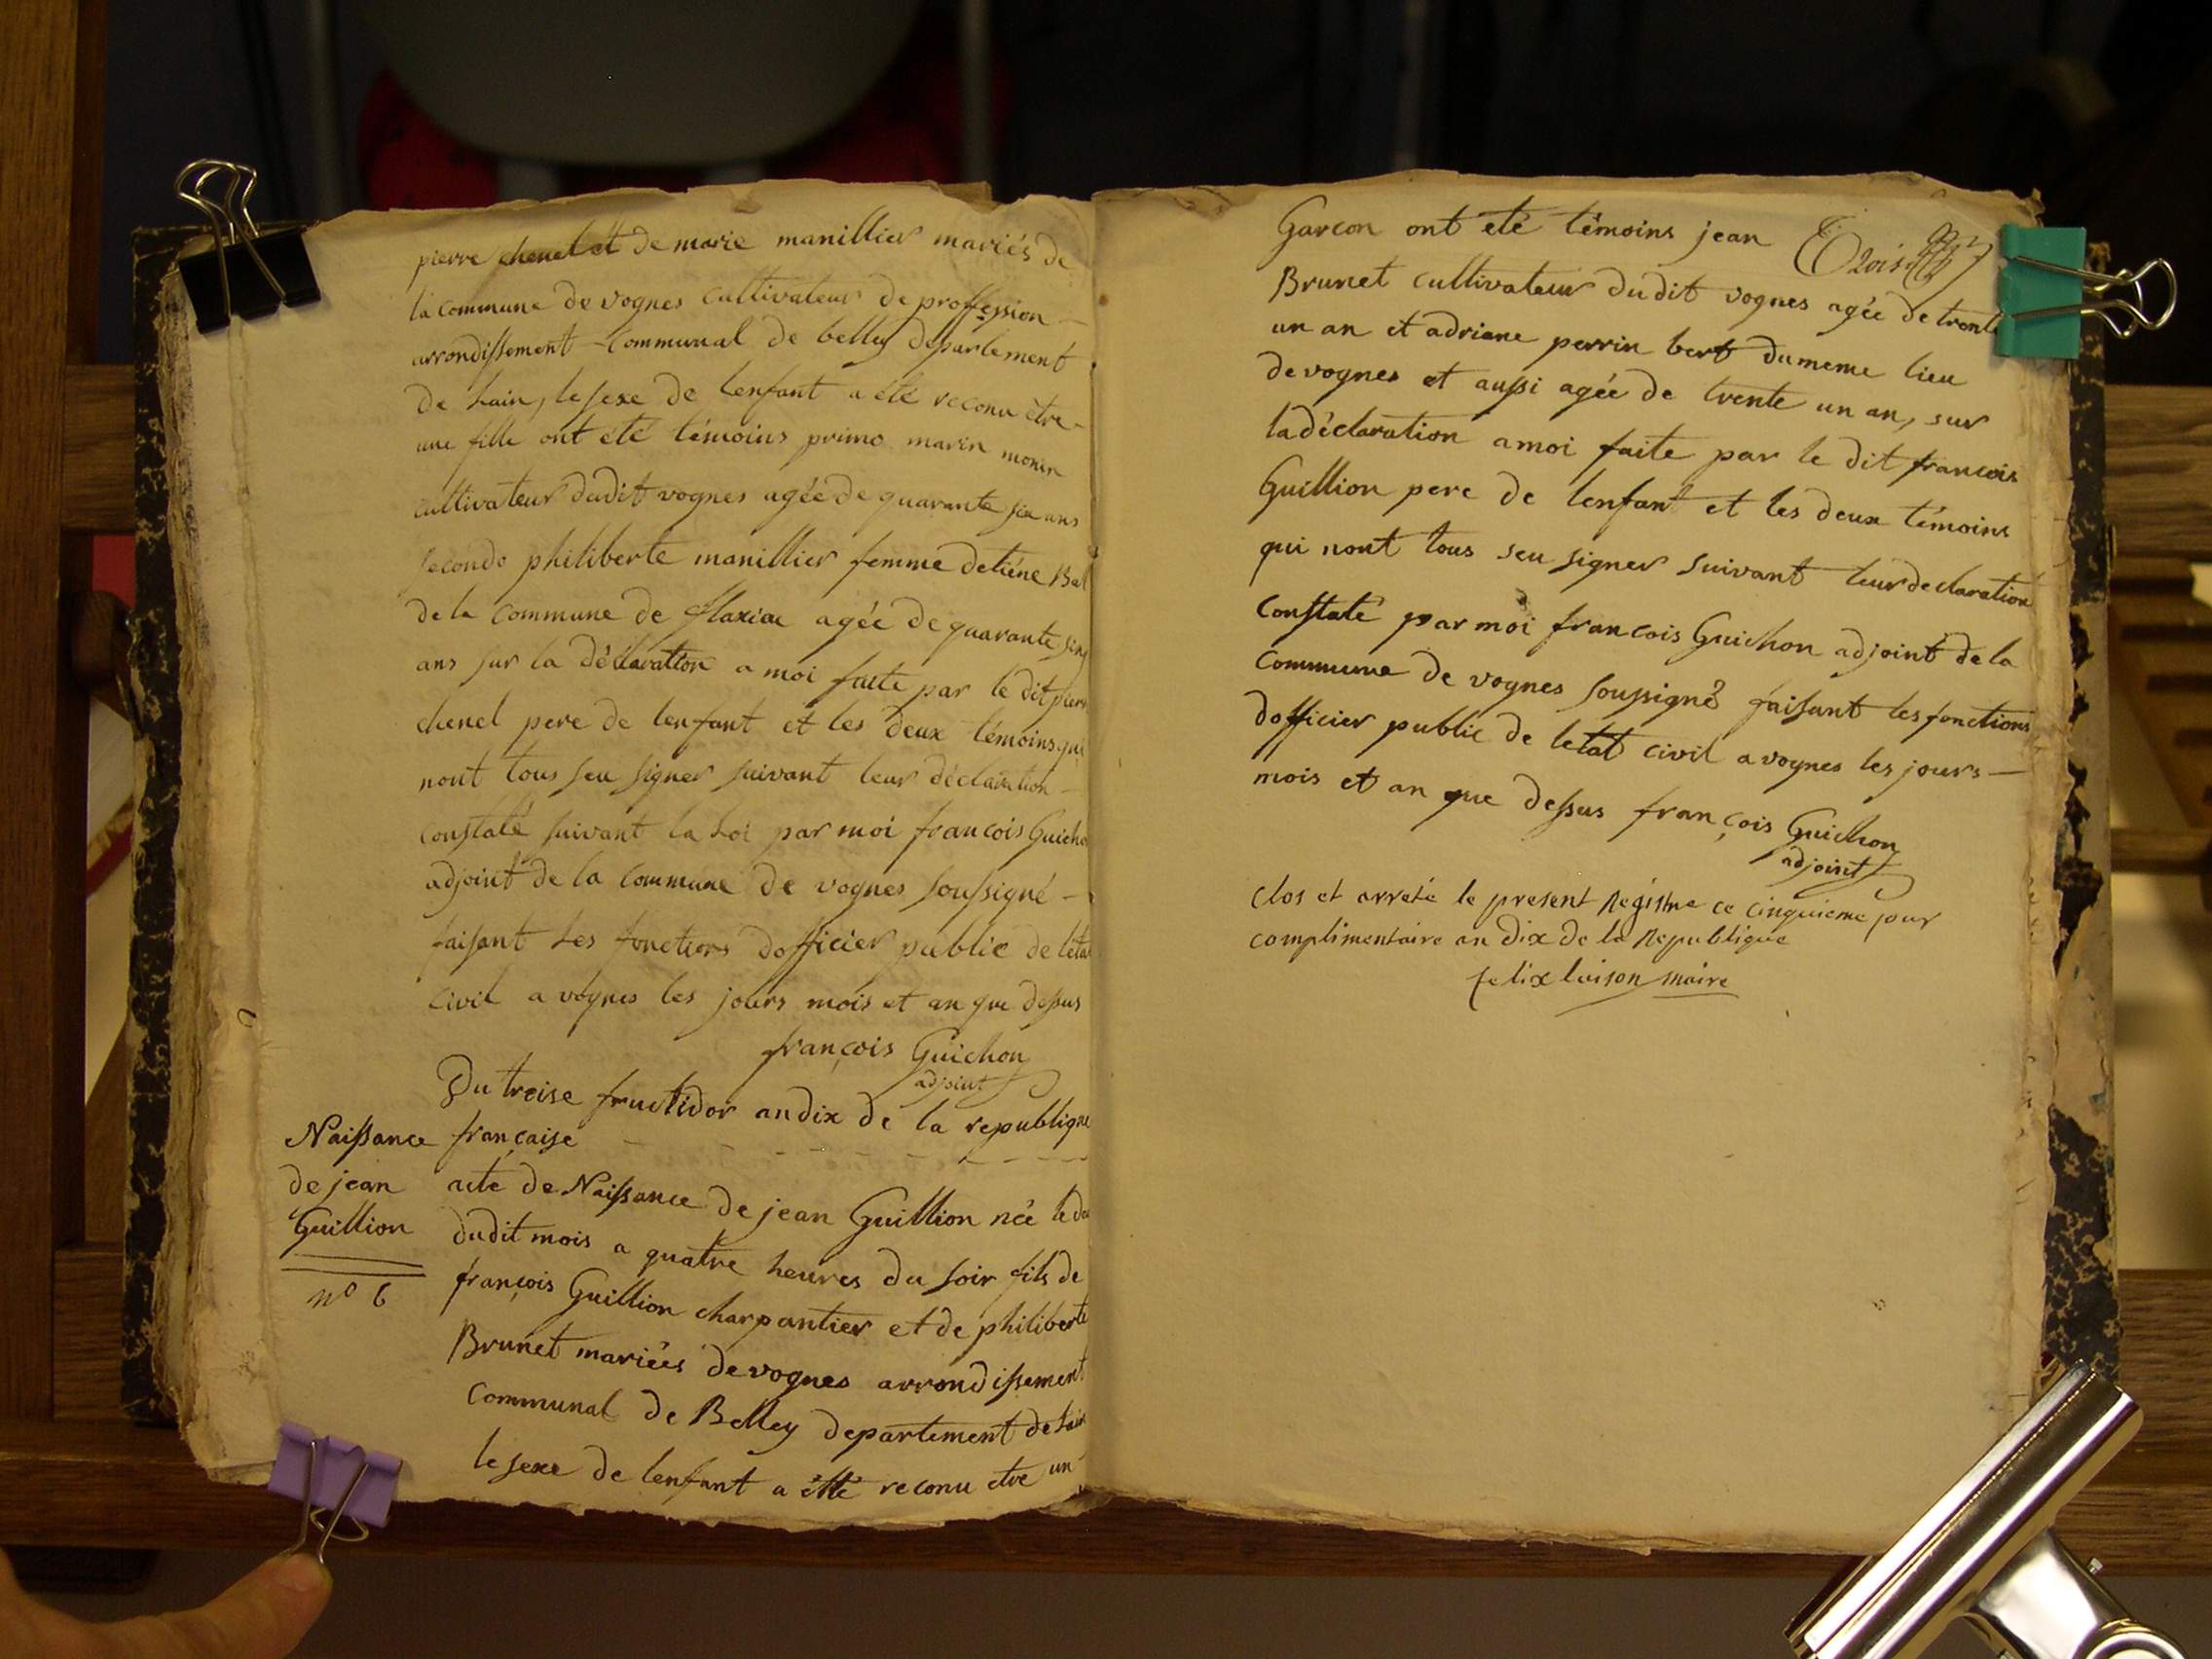 pierre chenel et de marie manillier mariés de
la commune de vognes cultivateur de proffession
arrondissement communal de belley departement
de Lain, le sexe de lenfant a été reconu être
une fille ont été témoins primo marin monin
cultivateur dudit vognes agée de quarante six ans
secondo philiberte manillier femme detiéne Bal
de la commune de flaxieu agée de quarante sinq
ans sur la déclaration a moi faite par le dit pierre
chenel pere de lenfant et les deux témoins qui
nont tous seu signer suivant leur déclaration
constaté suivant la Loi par moi francois Guicho
adjoint de la commune de vognes soussigné
faisant Les fonctions dofficier public de létat
civil a vognes les jours mois et an que dessus
françois Guichon
adjoint
Du treise fructidor an dix de la republique
française
Naissance
de jean
Guillion
nº 6
acte de Naissance de jean Guillion née le
dudit mois a quatre heures du soir fils de
françois Guillion charpantier et de philiberte
Brunet mariées de vognes arrondissement
Communal de Belley departement de Lain
le sexe de lenfant a été reconu etre un
Garcon ont eté témoins jean
Brunet cultivateur dudit vognes agée de trente
un an et adriane perrin bert du meme lieu
de vognes et aussi agée de trente un an, sur
la déclaration a moi faite par le dit francois
Guillion pere de lenfant et les deux témoins
qui nont tous seu signer suivant leur declaration
Constaté par moi francois Guichon adjoint de la
Commune de vognes soussigné faisant les fonctions
dofficier public de letat civil a vognes les jours
mois et an que dessus françois Guichon
adjoint
Clos et arreté le present Registre ce cinquieme jour
complimentaire an dix de la Republique
felix loison maire